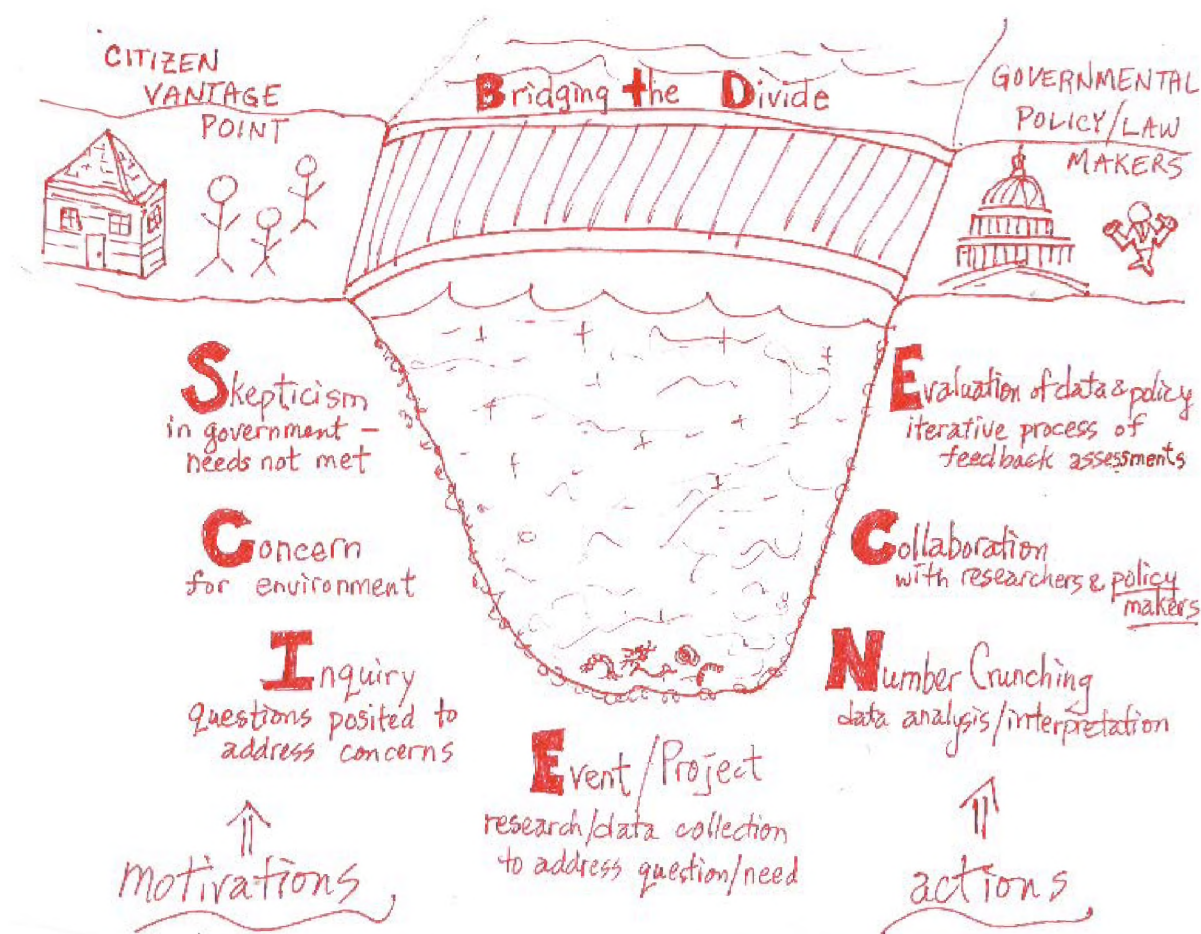 CITIZEN
VANTAGE
POINT
Bridging the Divide
GOVERNMENTAL
POLICY/LAW
MAKERS
Skepticism
in government -
needs not met
Concern
for environment
Inquiry
questions posited to
address concerns
motivations
Event/Project
research/data collection
to address question/need
Evaluation of data & policy
iterative process of
feedback assessments
Collaboration
with researchers & policy
makers
Number Crunching
data analysis/interpretation
actions